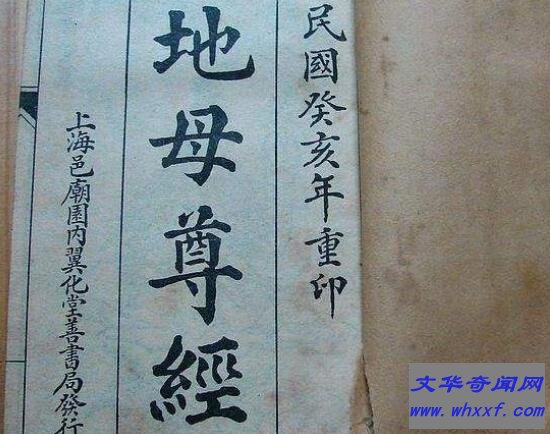 民國癸亥年重印
地母尊經
上海邑廟園内翼化堂善書局發行
文华奇闻网
www.whxxf.com